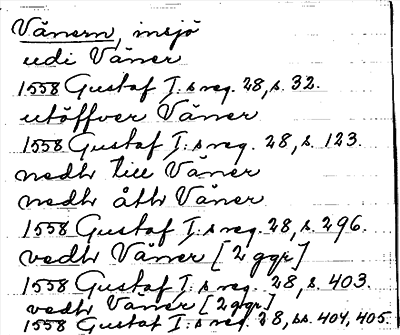 Vänern, insjö
udi Väner
1558 Gustaf I:s reg. 28, s. 32.
utöffver Väner
1558 Gustaf I:s reg. 28, s. 123.
nedh till Väner
nedh åth Väner
1558 Gustaf I:s reg. 28, s. 296.
vedh Väner [2 ggr]
1558 Gustaf I:s reg. 28, s. 403.
vedh Väner [2 ggr]
1558 Gustaf I:s reg. 28, ss. 404, 405.